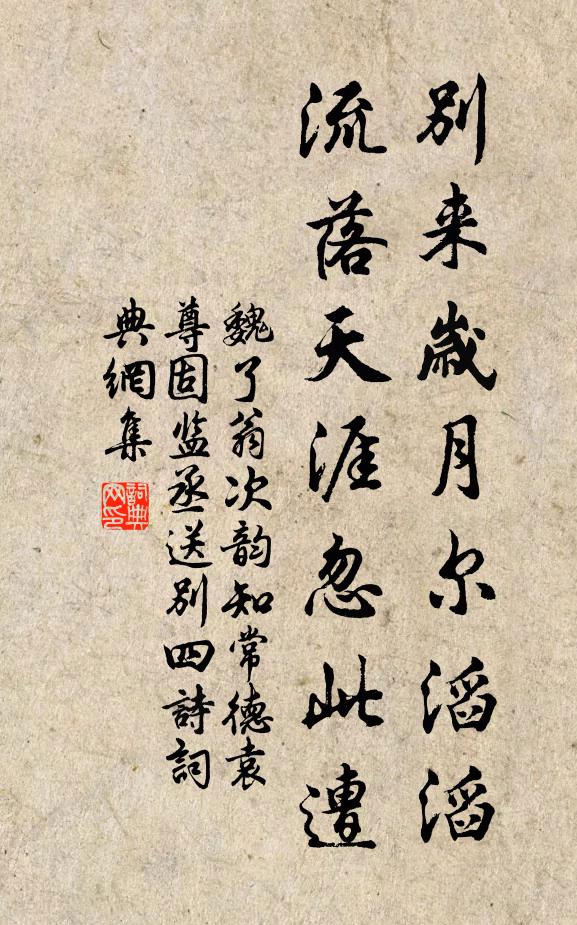 别来歳月尔滔滔
流落天涯忽此遭
魏了翁次韵知常德袁
尊固监丞送别四詩詞
典網集
詞典網印